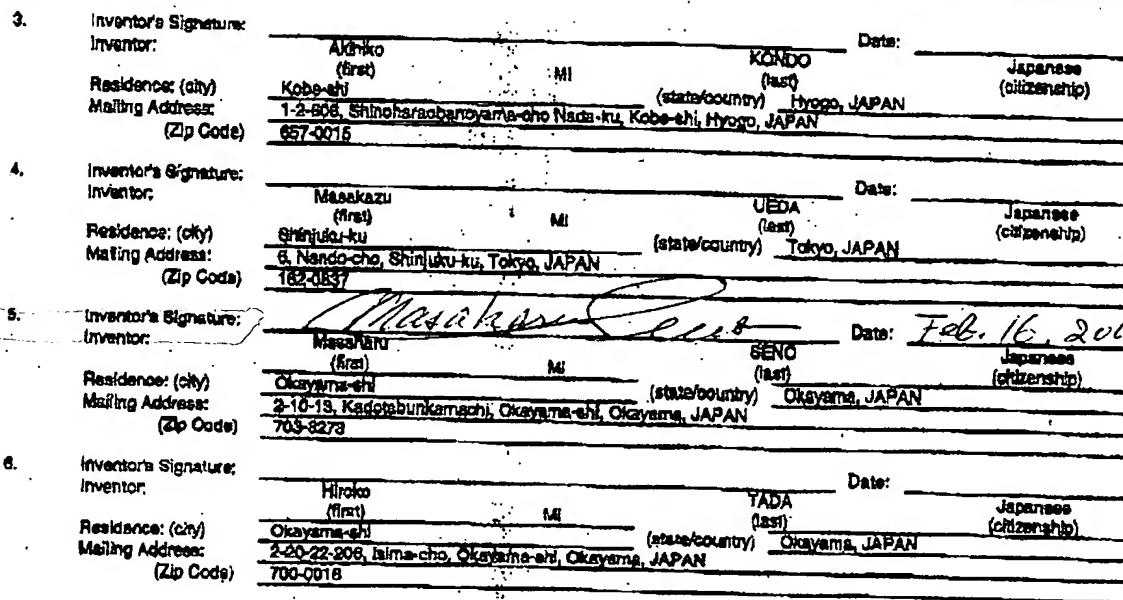 3. Inventor's Signature: Date:
Inventor: Akihiko KONDO Japanese
(first) MI (last) (citizenship)
Residence: (city) Kobe-shi (state/country) Hyogo, JAPAN
Mailing Address: 1-2-806, Shinoharaobanoyama-cho Nada-ku, Kobe-shi, Hyogo, JAPAN
(Zip Code) 657-0015
4. Inventor's Signature: Date:
Inventor: Masakazu UEDA Japanese
(first) MI (last) (citizenship)
Residence: (city) Shinjuku-ku (state/country) Tokyo, JAPAN
Mailing Address: 6, Nando-cho, Shinjuku-ku, Tokyo, JAPAN
(Zip Code) 162-0837
5. Inventor's Signature: Masaharu Seno Date: Feb. 16. 200
Inventor: Masaharu SENO Japanese
(first) MI (last) (citizenship)
Residence: (city) Okayama-shi (state/country) Okayama, JAPAN
Mailing Address: 2-10-13, Kadotabunkamachi, Okayama-shi, Okayama, JAPAN
(Zip Code) 703-8273
6. Inventor's Signature: Date:
Inventor: Hiroko TADA Japanese
(first) MI (last) (citizenship)
Residence: (city) Okayama-shi (state/country) Okayama, JAPAN
Mailing Address: 2-20-22-206, Isima-cho, Okayama-shi, Okayama, JAPAN
(Zip Code) 700-0016